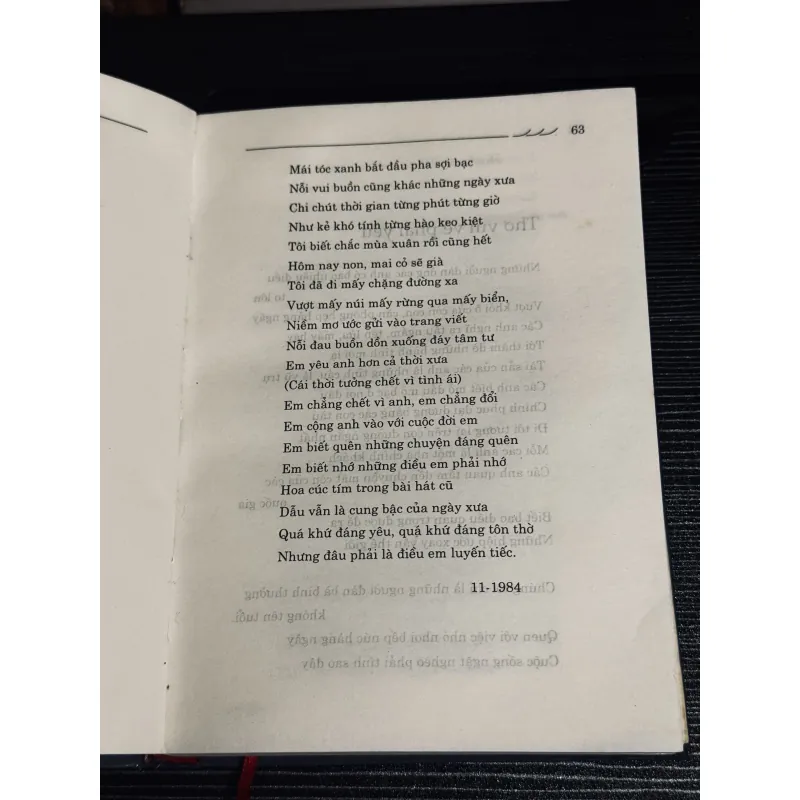 63
Mái tóc xanh bắt đầu pha sợi bạc
Nỗi vui buồn cũng khác những ngày xưa
Chi chút thời gian từng phút từng giờ
Như kẻ khó tính từng hào keo kiệt
Tôi biết chắc mùa xuân rồi cũng hết
Hôm nay non, mai cỏ sẽ già
Tôi đã đi mấy chặng đường xa
Vượt mấy núi mấy rừng qua mấy biển,
Niềm mơ ước gửi vào trang viết
Nỗi đau buồn dồn xuống đáy tâm tư
Em yêu anh hơn cả thời xưa
(Cái thời tưởng chết vì tình ái)
Em chẳng chết vì anh, em chẳng đổi
Em cộng anh vào với cuộc đời em
Em biết quên những chuyện đáng quên
Em biết nhớ những điều em phải nhớ
Hoa cúc tím trong bài hát cũ
Dẫu vẫn là cung bậc của ngày xưa
Quá khứ đáng yêu, quá khứ đáng tôn thờ
Nhưng đâu phải là điều em luyến tiếc.
11-1984